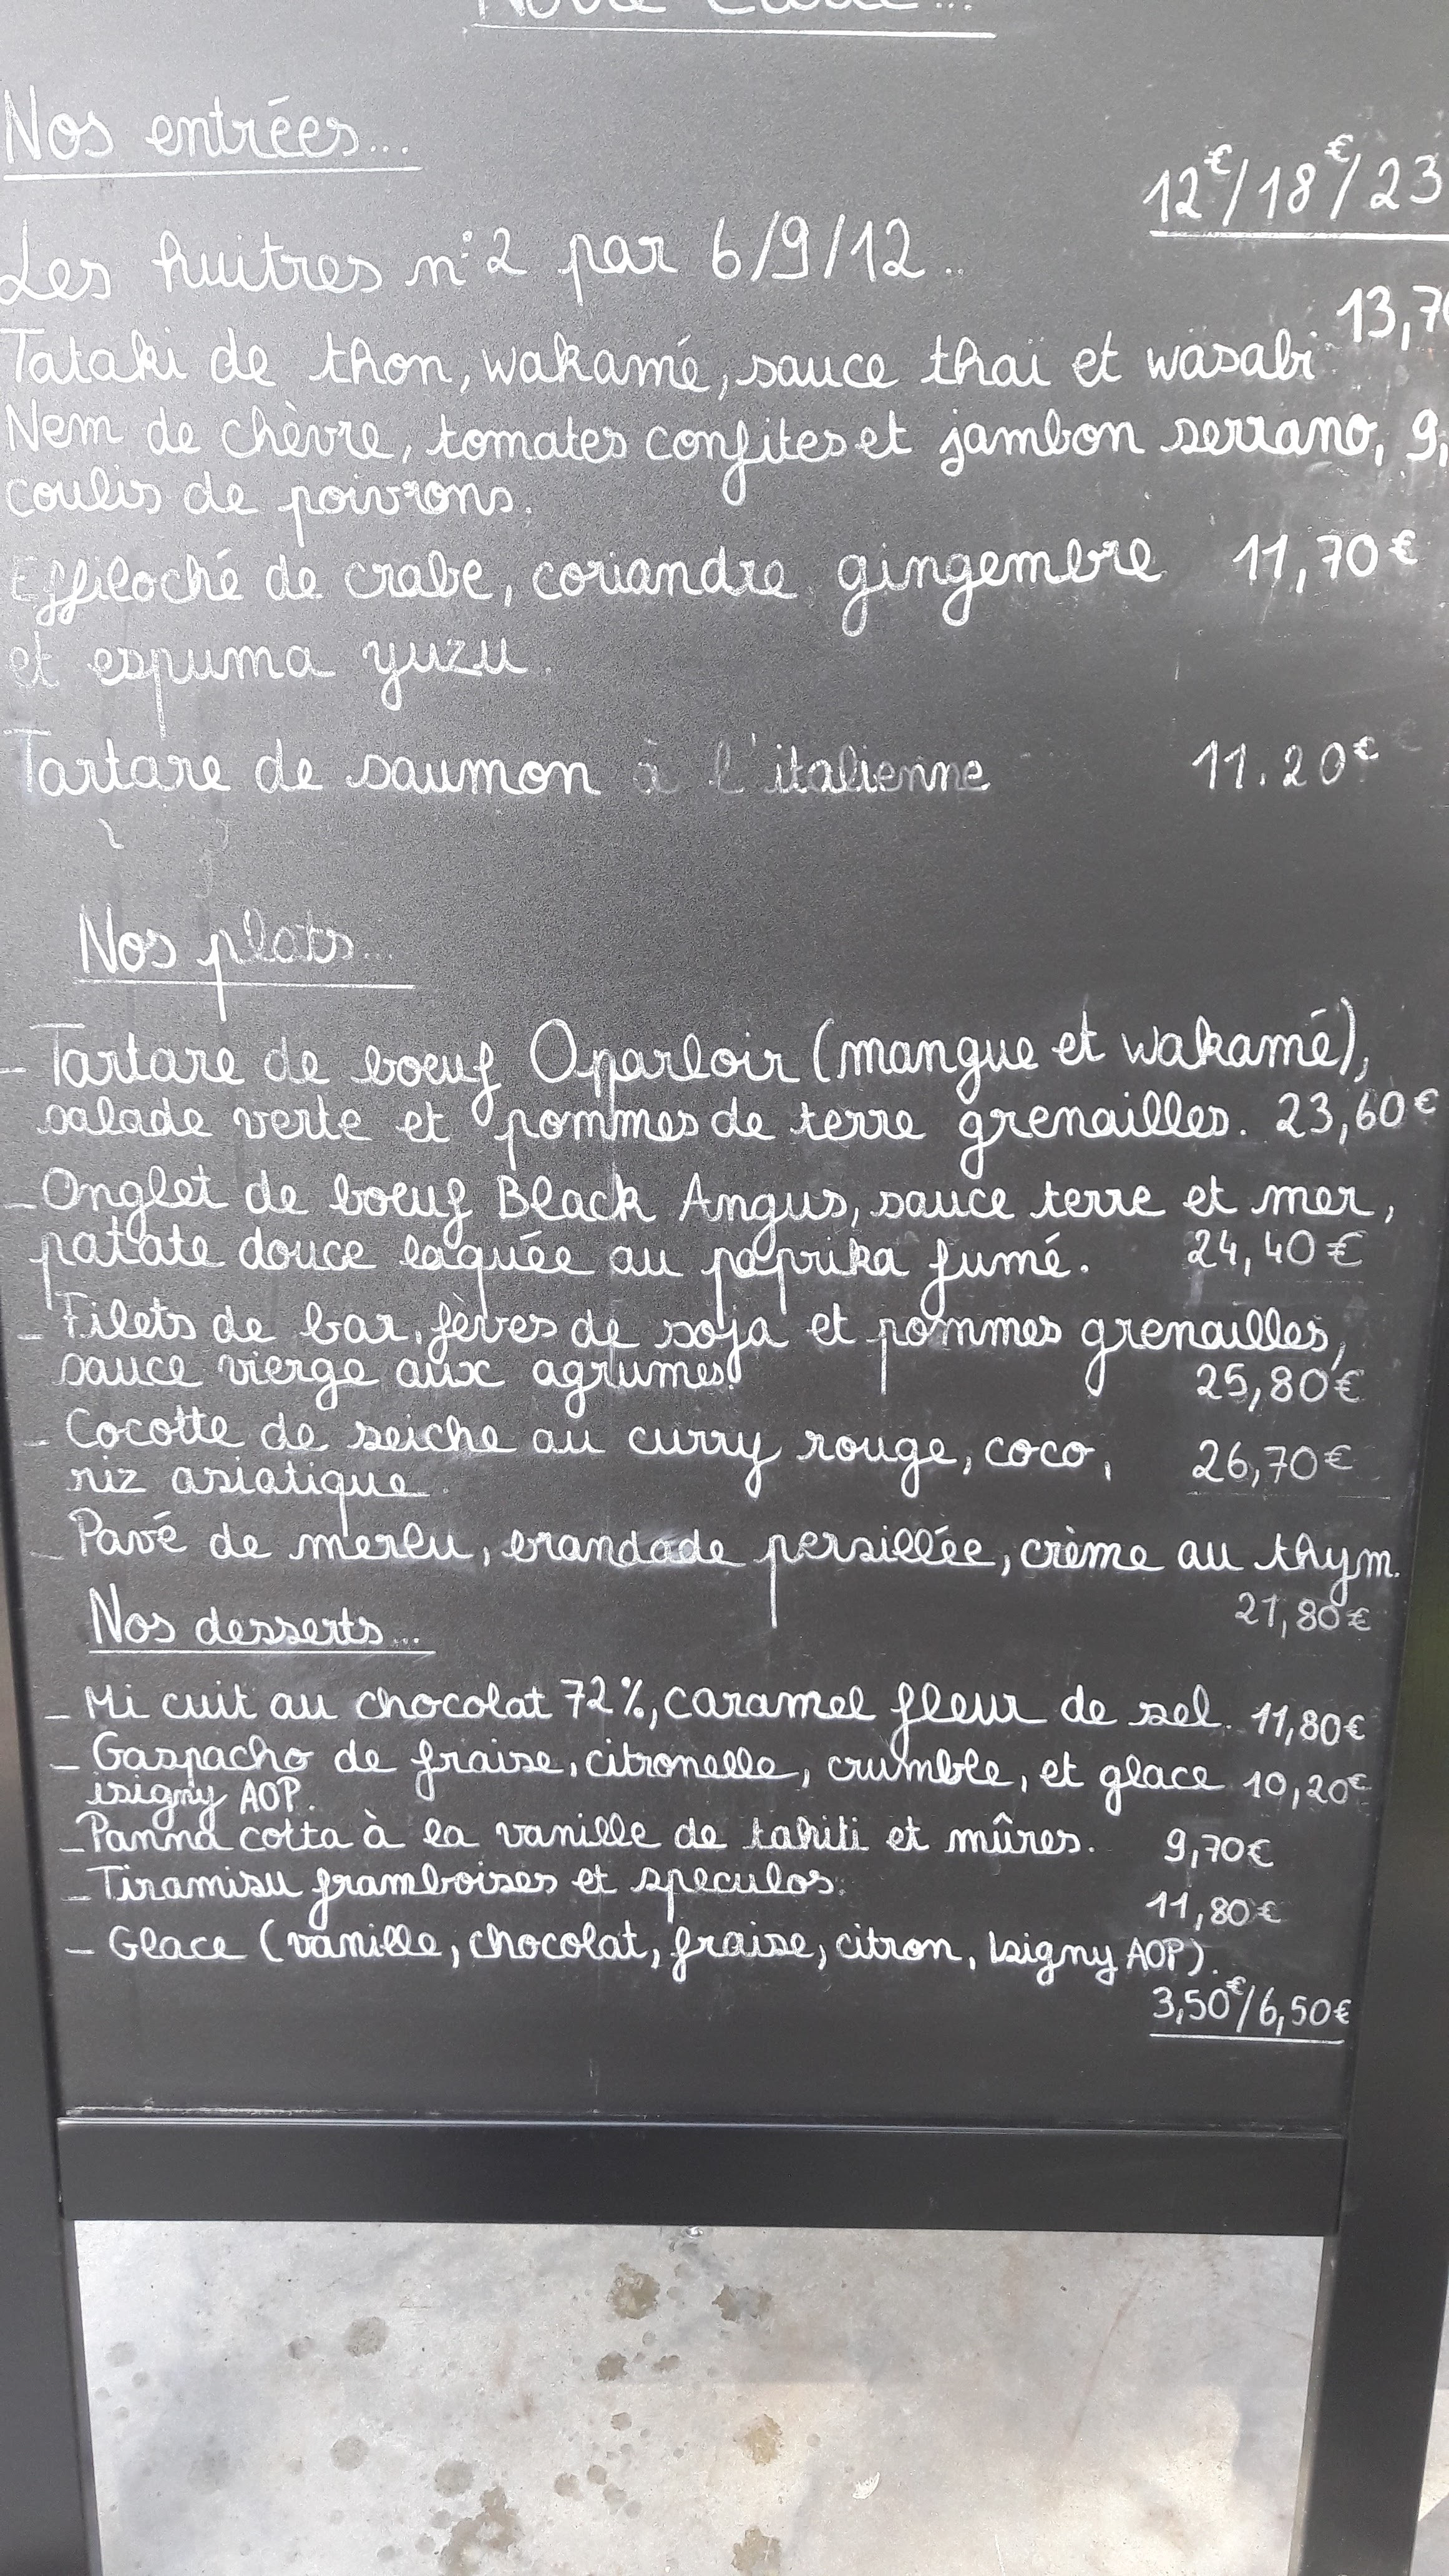 Notre Carte...
Nos entrées...
12€/18€/23
Les huitres n°2 par 6/9/12..
13,70
Tataki de thon, wakamé, sauce thaï et wasabi
Nem de chèvre, tomates confites et jambon serrano, 9,
coulis de poivrons.
Effiloché de crabe, coriandre gingembre 11,70€
et espuma yuzu.
Tartare de saumon à l'italienne 11.20€
Nos plats...
- Tartare de boeuf Oparloir (mangue et wakamé),
salade verte et pommes de terre grenailles. 23,60€
- Onglet de boeuf Black Angus, sauce terre et mer,
patate douce laquée au paprika fumé. 24,40€
- Filets de bar, fèves de soja et pommes grenailles,
sauce vierge aux agrumes. 25,80€
- Cocotte de seiche au curry rouge, coco, 26,70€
riz asiatique.
- Pavé de merlu, brandade persillée, crème au thym.
21,80€
Nos desserts...
- Mi cuit au chocolat 72%, caramel fleur de sel. 11,80€
- Gaspacho de fraise, citronelle, crumble, et glace 10,20€
isigny AOP.
- Panna cotta à la vanille de tahiti et mûres. 9,70€
- Tiramisu framboises et speculos. 11,80€
- Glace (vanille, chocolat, fraise, citron, Isigny AOP).
3,50€/6,50€